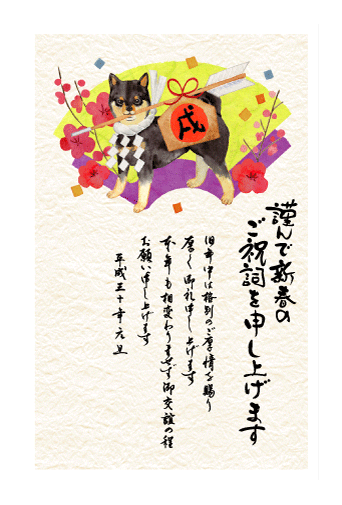 戌
謹んで新春の
ご祝詞を申し上げます
旧年中は格別のご厚情を賜り
厚く御礼申し上げます
本年も相変わりませず御交誼の程
お願い申し上げます
平成三十年元旦